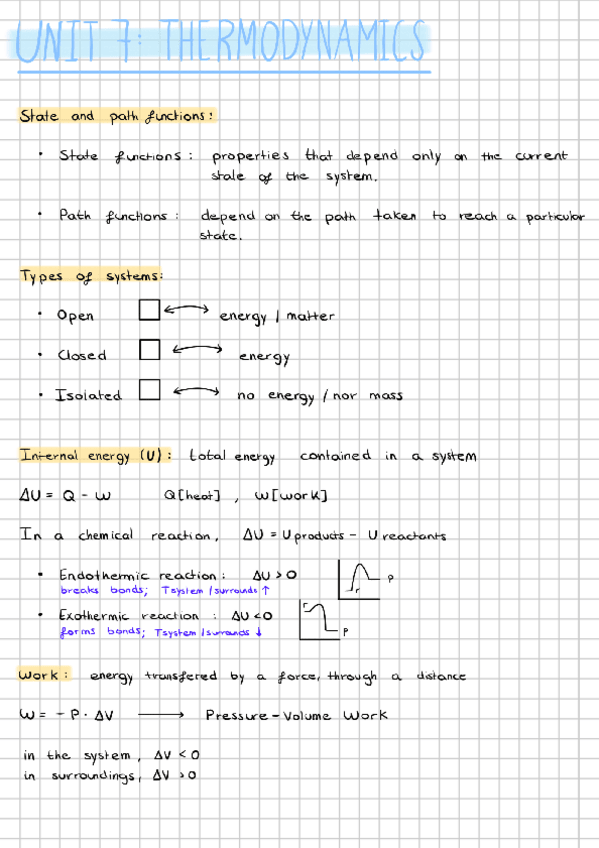 UNIT 7: THERMODYNAMICS
State and path functions:
• State functions: properties that depend only on the current
state of the system.
• Path functions: depend on the path taken to reach a particular
state.
Types of systems:
• Open energy / matter
• Closed energy
• Isolated no energy / nor mass
Internal energy (U): total energy contained in a system
ΔU = Q - W Q[heat], W[work]
In a chemical reaction, ΔU = Uproducts - Ureactants
• Endothermic reaction: ΔU > 0
breaks bonds; Tsystem / surrounds ↑
r P
• Exothermic reaction: ΔU < 0
forms bonds; Tsystem / surrounds ↓
r P
Work: energy transfered by a force, through a distance
W = - P · ΔV ⟶ Pressure-Volume Work
in the system, ΔV < 0
in surroundings, ΔV > 0